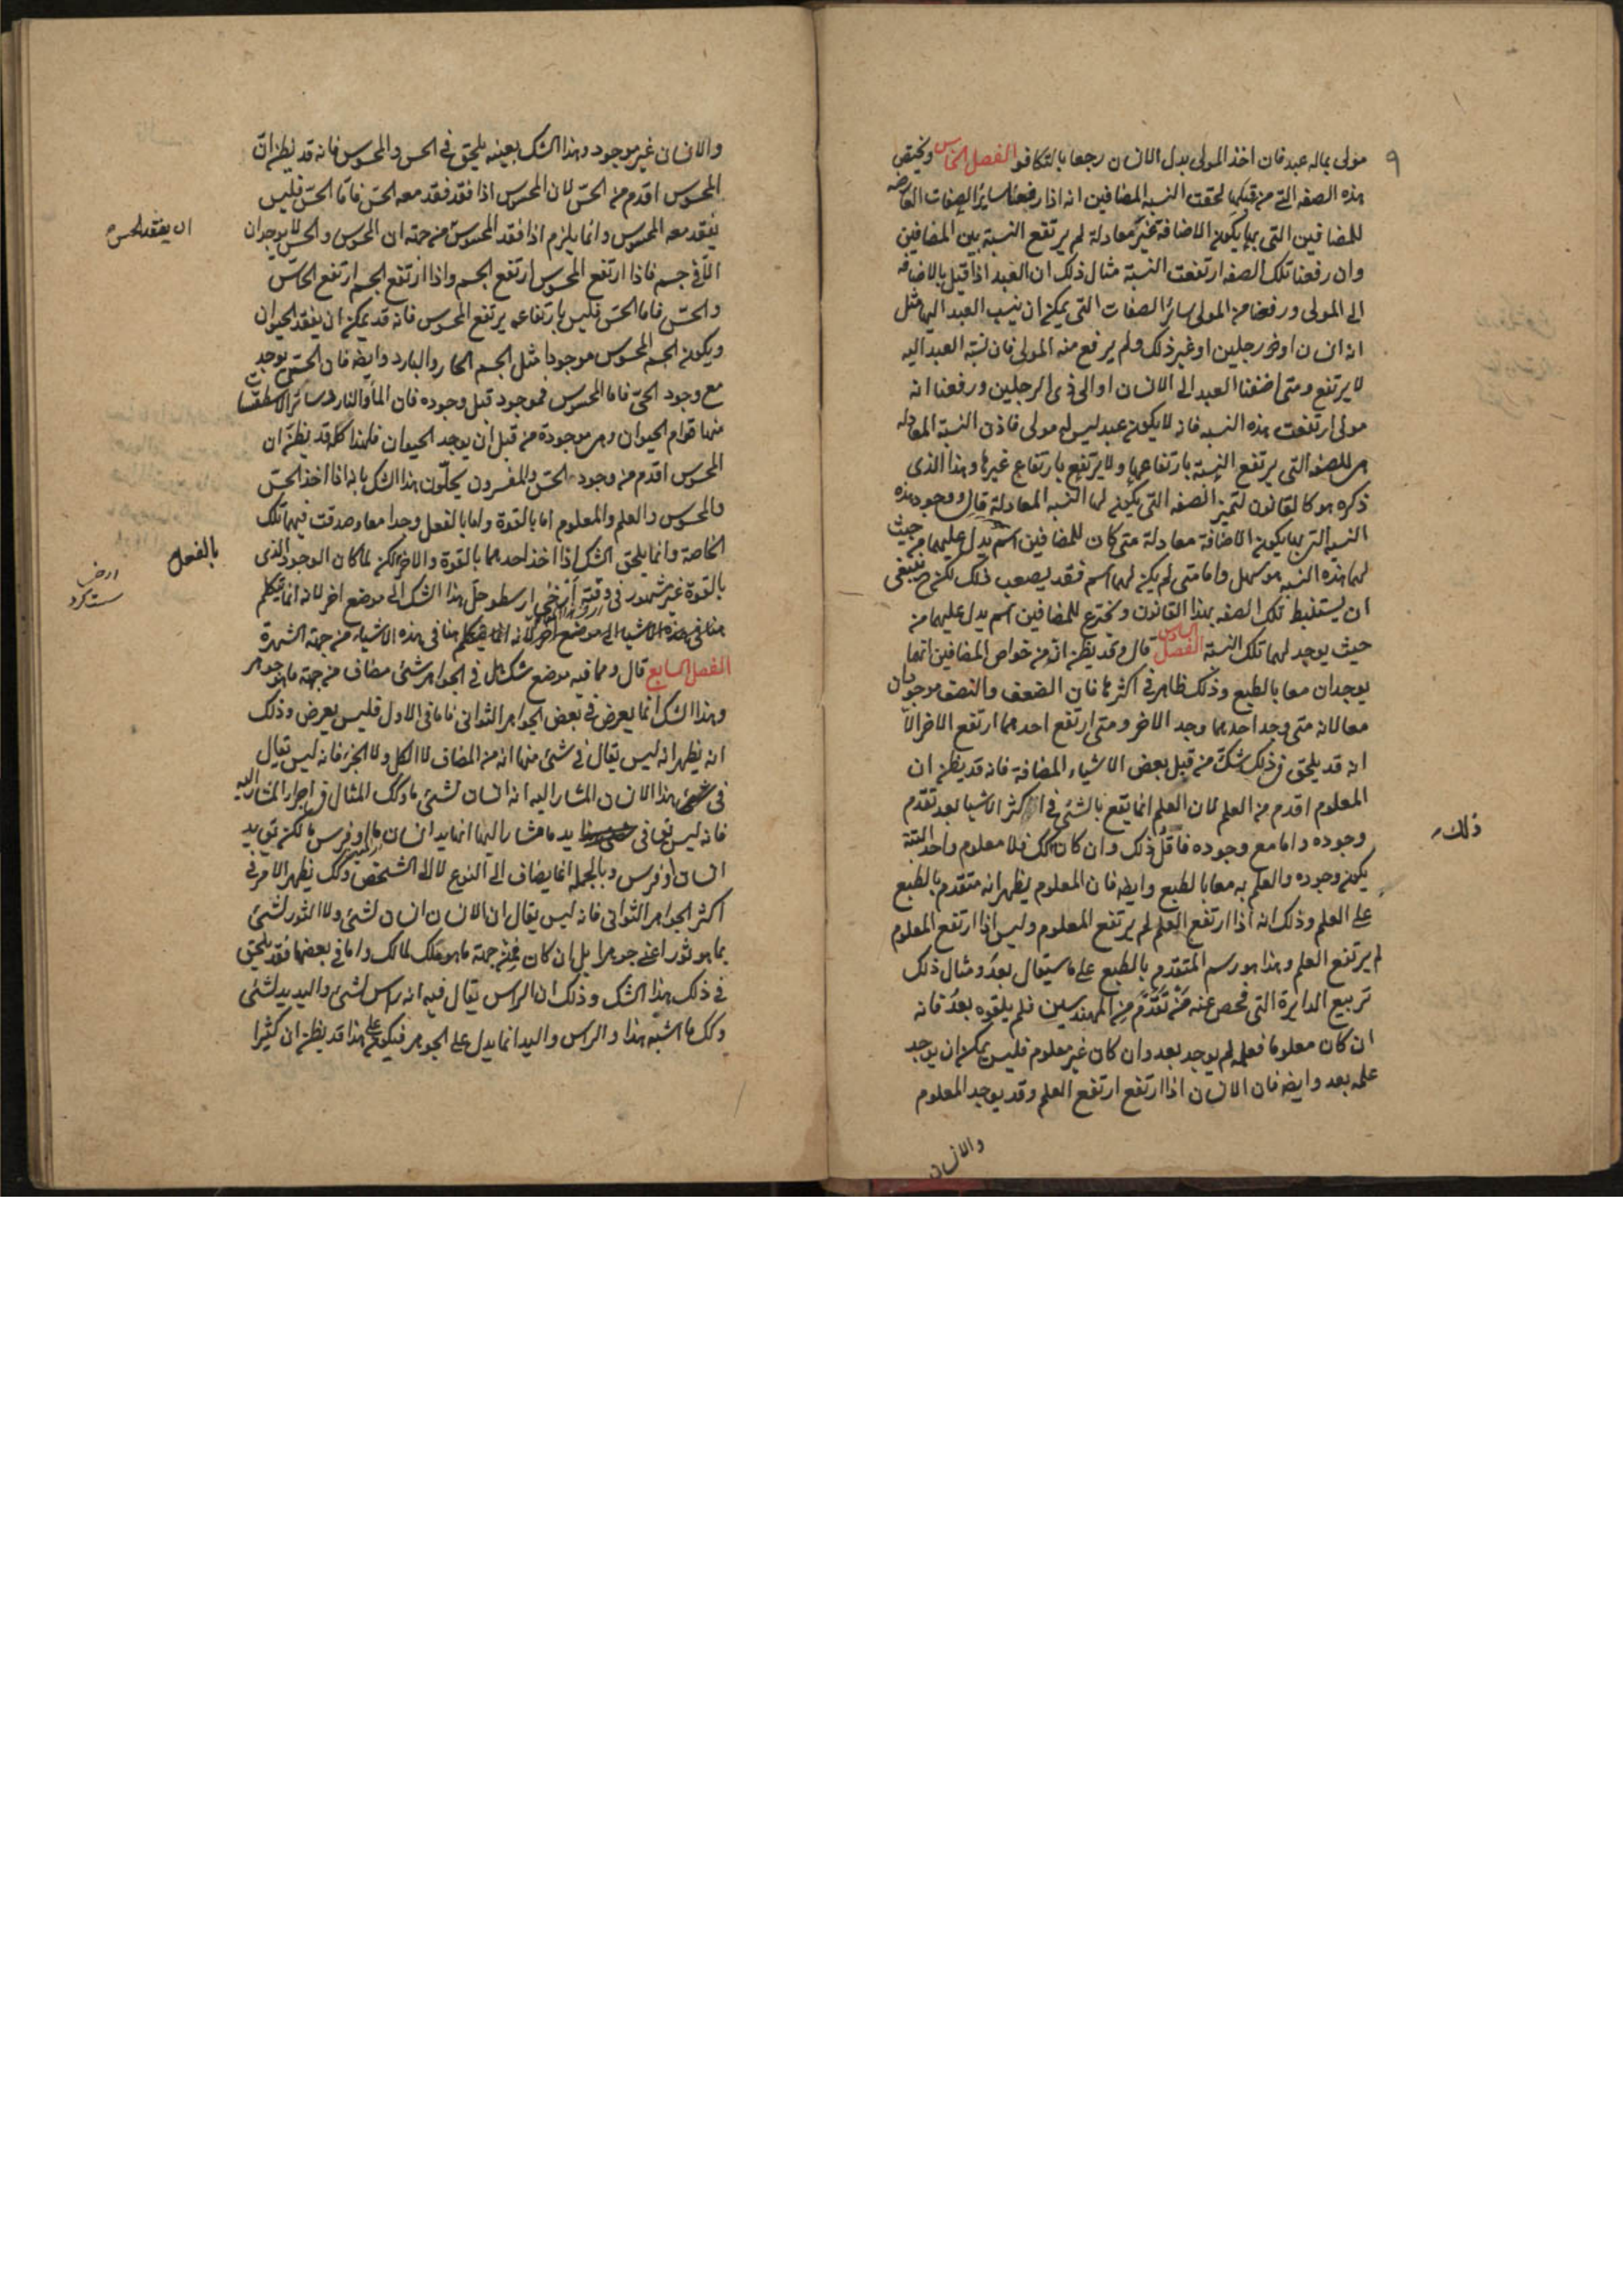 ٩
مولى بماله عبد فان اخذ المولى بدل الانسان رجعا بالتكافو الفصل الخامس ويختص
هذه الصفه التى من قبلها لحقت النسبه المضافين انه اذا رفعنا سائر الصفات العارضه
للمضافين التى بها يكون الاضافة غير معادلة لم يرتفع النسبة بين المضافين
وان رفعنا تلك الصفه ارتفعت النسبة مثال ذلك ان العبد اذا قيل بالاضافه
الى المولى ورفعنا من المولى سائر الصفات التى يمكن ان ينسب العبد اليها مثل
انه انسان او ذو رجلين او غير ذلك ولم يرفع منه المولى فان نسبة العبد اليه
لا يرتفع ومتى اضفنا العبد الى الانسان او الى ذى الرجلين ورفعنا انه
مولى ارتفعت هذه النسبه فانه لا يكون عبد ليس له مولى فاذن النسبة المعادله
هى للصفه التى يرتفع النسبة بارتفاعها ولا يرتفع بارتفاع غيرها وهذا الذى
ذكره هو كالقانون لتميز الصفه التى يكون لها النسبه المعادلة قال ووجود هذه
النسبه التى بها يكون الاضافة معادلة متى كان للمضافين اسم يدل عليهما من حيث
لهما هذه النسبه هو سهل واما متى لم يكن لهما اسم فقد يصعب ذلك لكن ينبغى
ان يستنبط تلك الصفه بهذا القانون ويخترع للمضافين اسم يدل عليهما من
حيث يوجد لهما تلك النسبة الفصل السادس قال وقد يظن ان من خواص المضافين انهما
يوجدان معا بالطبع وذلك ظاهر فى اكثرها فان الضعف والنصف موجودان
معا لانه متى وجد احدهما وجد الاخر ومتى ارتفع احدهما ارتفع الاخر الا
انه قد يلحق فى ذلك شك من قبل بعض الاشياء المضافة فانه قد يظن ان
المعلوم اقدم من العلم لان العلم انما يقع بالشئ فى اكثر الاشيا بعد تقدم
وجوده واما مع وجوده فاقل ذلك وان كان كك فلا معلوم واحد البتة
ذلك
يكون وجوده والعلم به معا بالطبع وايضه فان المعلوم يظهر انه متقدم بالطبع
على العلم وذلك انه اذا ارتفع العلم لم يرتفع المعلوم وليس اذا ارتفع المعلوم
لم يرتفع العلم وهذا هو رسم المتقدم بالطبع على ما سيقال بعد ومثال ذلك
تربيع الدايرة التى فحص عنه من تقدم من المهندسين فلم يلقوه بعد فانه
ان كان معلوما فعلمه لم يوجد بعد وان كان غير معلوم فليس يمكن ان يوجد
علمه بعد وايضه فان الانسان اذا ارتفع ارتفع العلم وقد يوجد المعلوم
والانسان
والانسان غير موجود وهذا الشك بعينه يلحق فى الحس والمحسوس فانه قد يظن ان
المحسوس اقدم من الحس لان المحسوس اذا فقد فقد معه الحس فاما الحس فليس
يفقد معه المحسوس وانما يلزم اذا فقد المحسوس من جهة ان المحسوس والحس لا يوجدان
ان يفقد الحس
الا فى جسم فاذا ارتفع المحسوس ارتفع الجسم واذا ارتفع الجسم ارتفع الحاس
والحس فاما الحس فليس بارتفاعه يرتفع المحسوس فانه قد يمكن ان يفقد الحيوان
ويكون الجسم المحسوس موجودا مثل الجسم الحار والبارد وايضه فان الحس يوجد
مع وجود الحى فاما المحسوس فموجود قبل وجوده فان الما والنار وسائر الاسطقسات
منها قوام الحيوان وهى موجودة من قبل ان يوجد الحيوان فلهذا كله قد يظن ان
المحسوس اقدم من وجود الحس والمفسرون يحلون هذا الشك بانه اذا اخذ الحس
والمحسوس والعلم والمعلوم اما بالقوة واما بالفعل وجدا معا وصدقت فيهما تلك
الخاصة وانما يلحق الشك اذا اخذ احدهما بالقوة والاخر لكن لما كان الوجود الذى
بالفعل
بالقوة غير مشهور فى وقته أرخى ارسطو حل هذا الشك الى موضع اخر لانه انما يتكلم
هنا فى هذه الاشيا الى موضع اخر لانه انما يتكلم هنا فى هذه الاشياء من جهة الشهرة
الفصل السابع قال ومما فيه موضع شك هل فى الجواهر شئ مضاف من جهة ما هو جوهر
وهذا الشك انما يعرض فى بعض الجواهر الثوانى فاما فى الاول فليس يعرض وذلك
انه يظهر انه ليس يقال فى شئ منها انه من المضاف لا الكل ولا الجزء فانه ليس يقال
فى هذا الانسان المشار اليه انه انسان لشئ ما وكك المثال فى اجزاء المشار اليه
فانه ليس يقا فى يد ما مشار اليها انما يد انسان ما او فرس ما لكن تق يد
انسان او فرس وبالجملة انما يضاف الى النوع لا الى الشخص وكك يظهر الامر فى
اكثر الجواهر الثوانى فانه ليس يقال ان الانسان انسان لشئ ولا الثور لشئ
بما هو ثور اعنى جوهرا بل ان كان فمن جهة ما هو ملك لمالك واما فى بعضها فقد يلحق
فى ذلك هذا الشك وذلك ان الراس يقال فيه انه راس لشئ واليد يد لشئ
وكك ما اشبه هذا والراس واليد انما يدل على الجوهر فيكون على هذا قد يظن ان كثيرا